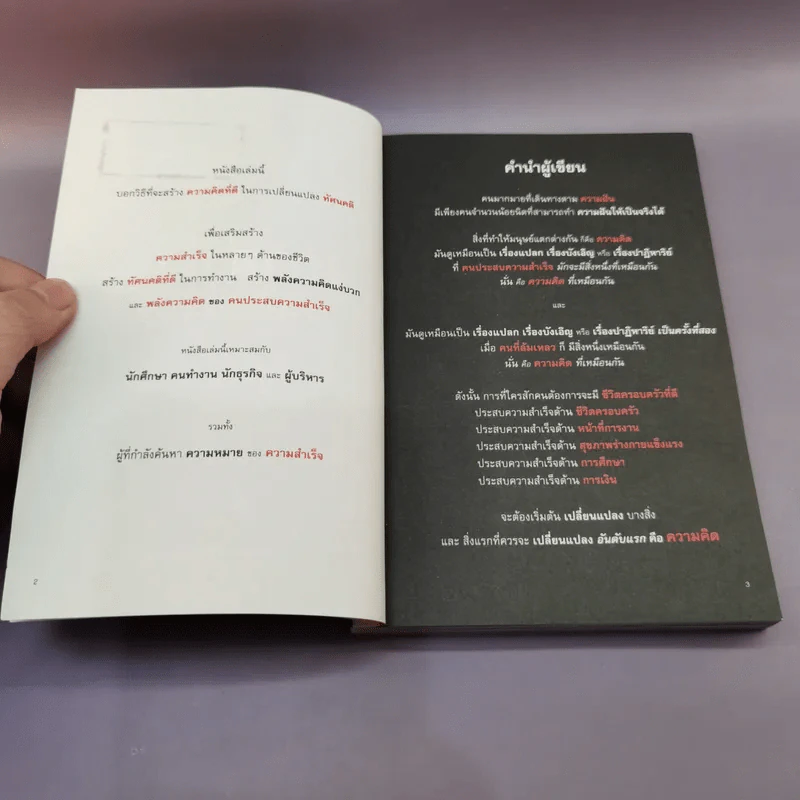 หนังสือเล่มนี้
บอกวิธีที่จะสร้าง ความคิดที่ดี ในการเปลี่ยนแปลง ทัศนคติ
เพื่อเสริมสร้าง
ความสำเร็จ ในหลายๆ ด้านของชีวิต
สร้าง ทัศนคติที่ดี ในการทำงาน สร้าง พลังความคิดแง่บวก
และ พลังความคิด ของ คนประสบความสำเร็จ
หนังสือเล่มนี้เหมาะสมกับ
นักศึกษา คนทำงาน นักธุรกิจ และ ผู้บริหาร
รวมทั้ง
ผู้ที่กำลังค้นหา ความหมาย ของ ความสำเร็จ
2
คำนำผู้เขียน
คนมากมายที่เดินทางตาม ความฝัน
มีเพียงคนจำนวนน้อยนิดที่สามารถทำ ความฝันให้เป็นจริงได้
สิ่งที่ทำให้มนุษย์แตกต่างกัน ก็คือ ความคิด
มันดูเหมือนเป็น เรื่องแปลก เรื่องบังเอิญ หรือ เรื่องปาฏิหาริย์
ที่ คนประสบความสำเร็จ มักจะมีสิ่งหนึ่งที่เหมือนกัน
นั่น คือ ความคิด ที่เหมือนกัน
และ
มันดูเหมือนเป็น เรื่องแปลก เรื่องบังเอิญ หรือ เรื่องปาฏิหาริย์ เป็นครั้งที่สอง
เมื่อ คนที่ล้มเหลว ก็ มีสิ่งหนึ่งเหมือนกัน
นั่น คือ ความคิด ที่เหมือนกัน
ดังนั้น การที่ใครสักคนต้องการจะมี ชีวิตครอบครัวที่ดี
ประสบความสำเร็จด้าน ชีวิตครอบครัว
ประสบความสำเร็จด้าน หน้าที่การงาน
ประสบความสำเร็จด้าน สุขภาพร่างกายแข็งแรง
ประสบความสำเร็จด้าน การศึกษา
ประสบความสำเร็จด้าน การเงิน
จะต้องเริ่มต้น เปลี่ยนแปลง บางสิ่ง
และ สิ่งแรกที่ควรจะ เปลี่ยนแปลง อันดับแรก คือ ความคิด
3